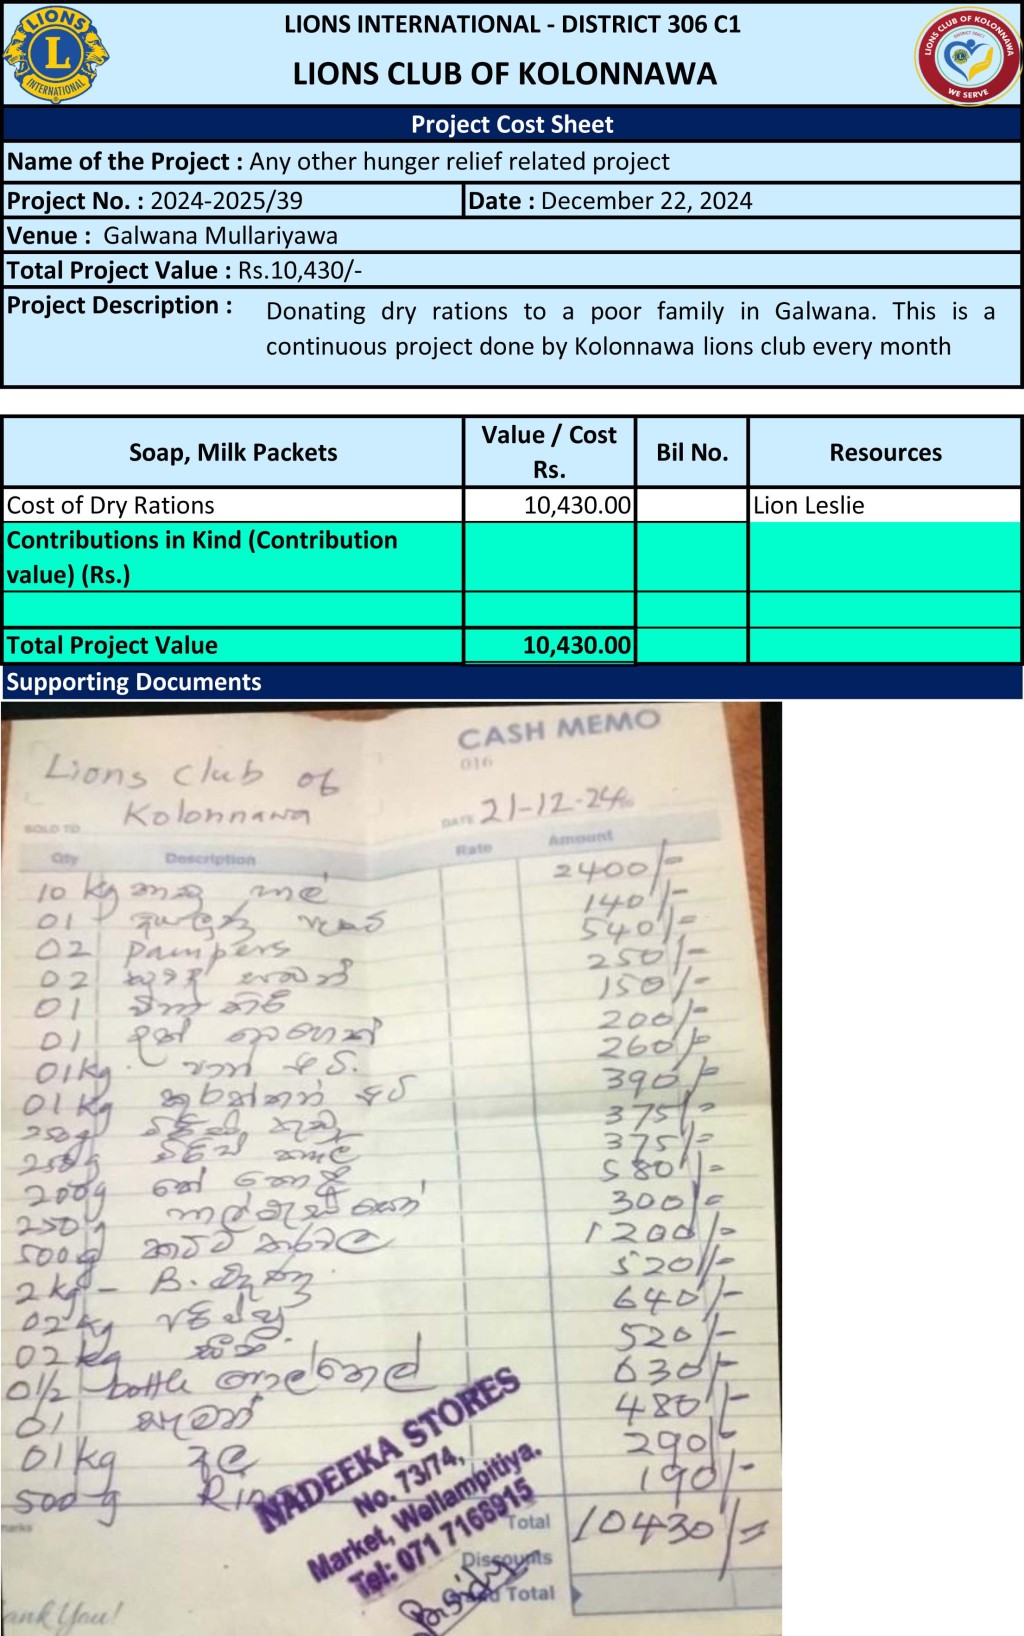 LIONS INTERNATIONAL
L
LIONS INTERNATIONAL - DISTRICT 306 C1
LIONS CLUB OF KOLONNAWA
LIONS CLUB OF KOLONNAWA
WE SERVE
Project Cost Sheet
Name of the Project : Any other hunger relief related project
Project No. : 2024-2025/39 Date : December 22, 2024
Venue : Galwana Mullariyawa
Total Project Value : Rs.10,430/-
Project Description : Donating dry rations to a poor family in Galwana. This is a
continuous project done by Kolonnawa lions club every month
Soap, Milk Packets Value / Cost Rs. Bil No. Resources
Cost of Dry Rations 10,430.00 Lion Leslie
Contributions in Kind (Contribution
value) (Rs.)
Total Project Value 10,430.00
Supporting Documents
CASH MEMO
016
Lions Club of
Kolonnawa
SOLD TO DATE 21-12-24
Qty Description Rate Amount
10 kg නාඩු හාල් 2400/-
01 140/-
02 Pampers 540/-
02 සුවඳ සබන් 250/-
01 150/-
01 දත් බෙහෙත් 200/-
01 kg පාන් පිටි 260/-
01 kg කුරක්කන් පිටි 390/-
250g මිරිස් කුඩු 375/-
250g මිරිස් කෑලි 375/-
200g තේ කොළ 580/-
250g හාල්මැස්සෝ 300/-
500g කට්ටා කරවල 1200/-
2 kg - B. 520/-
02 kg පරිප්පු 640/-
02 kg සීනි 520/-
01/2 bottle පොල්තෙල් 630/-
01 සැමන් 480/-
01 kg 290/-
500 g 190/-
Total 10430/=
Discounts
Total
NADEEKA STORES
No. 73/74,
Market, Wellampitiya.
Tel: 071 7168915
ank You!